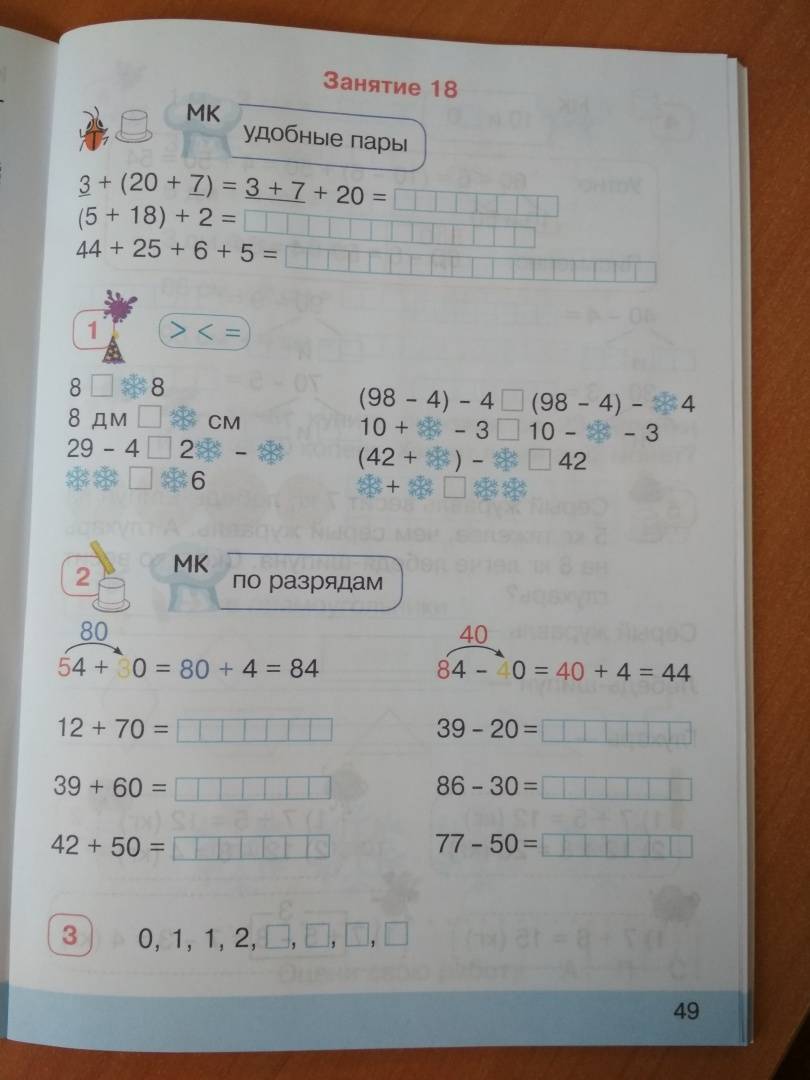 Занятие 18
МК
удобные пары
3 + (20 + 7) = 3 + 7 + 20 =
(5 + 18) + 2 =
44 + 25 + 6 + 5 =
1
> < =
8 □ ❄8
8 дм □ ❄ см
29 – 4 □ 2❄ – ❄
❄❄ □ ❄6
(98 – 4) – 4 □ (98 – 4) – ❄4
10 + ❄ – 3 □ 10 – ❄ – 3
(42 + ❄) – ❄ □ 42
❄ + ❄ □ ❄❄
2
МК
по разрядам
80
54 + 30 = 80 + 4 = 84
12 + 70 =
39 + 60 =
42 + 50 =
40
84 – 40 = 40 + 4 = 44
39 – 20 =
86 – 30 =
77 – 50 =
3
0, 1, 1, 2, □, □, □, □
49